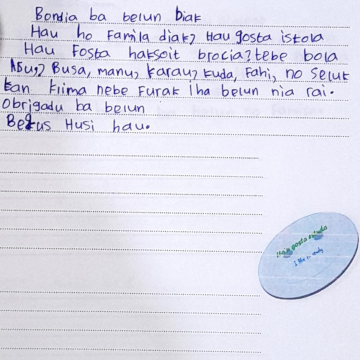 Bondia ba belun Diak
Hau ho Famila diak, Hau gosta iskola
Hau Fosta haksoit brocia, tebe bola
Asu, Busa, manu, karau, kuda, Fahi, no selut
kan klima nebe Furak iha belun nia rai.
Obrigadu ba belun
Bekus Husi hau.
Hau gosta estuda
I like to study